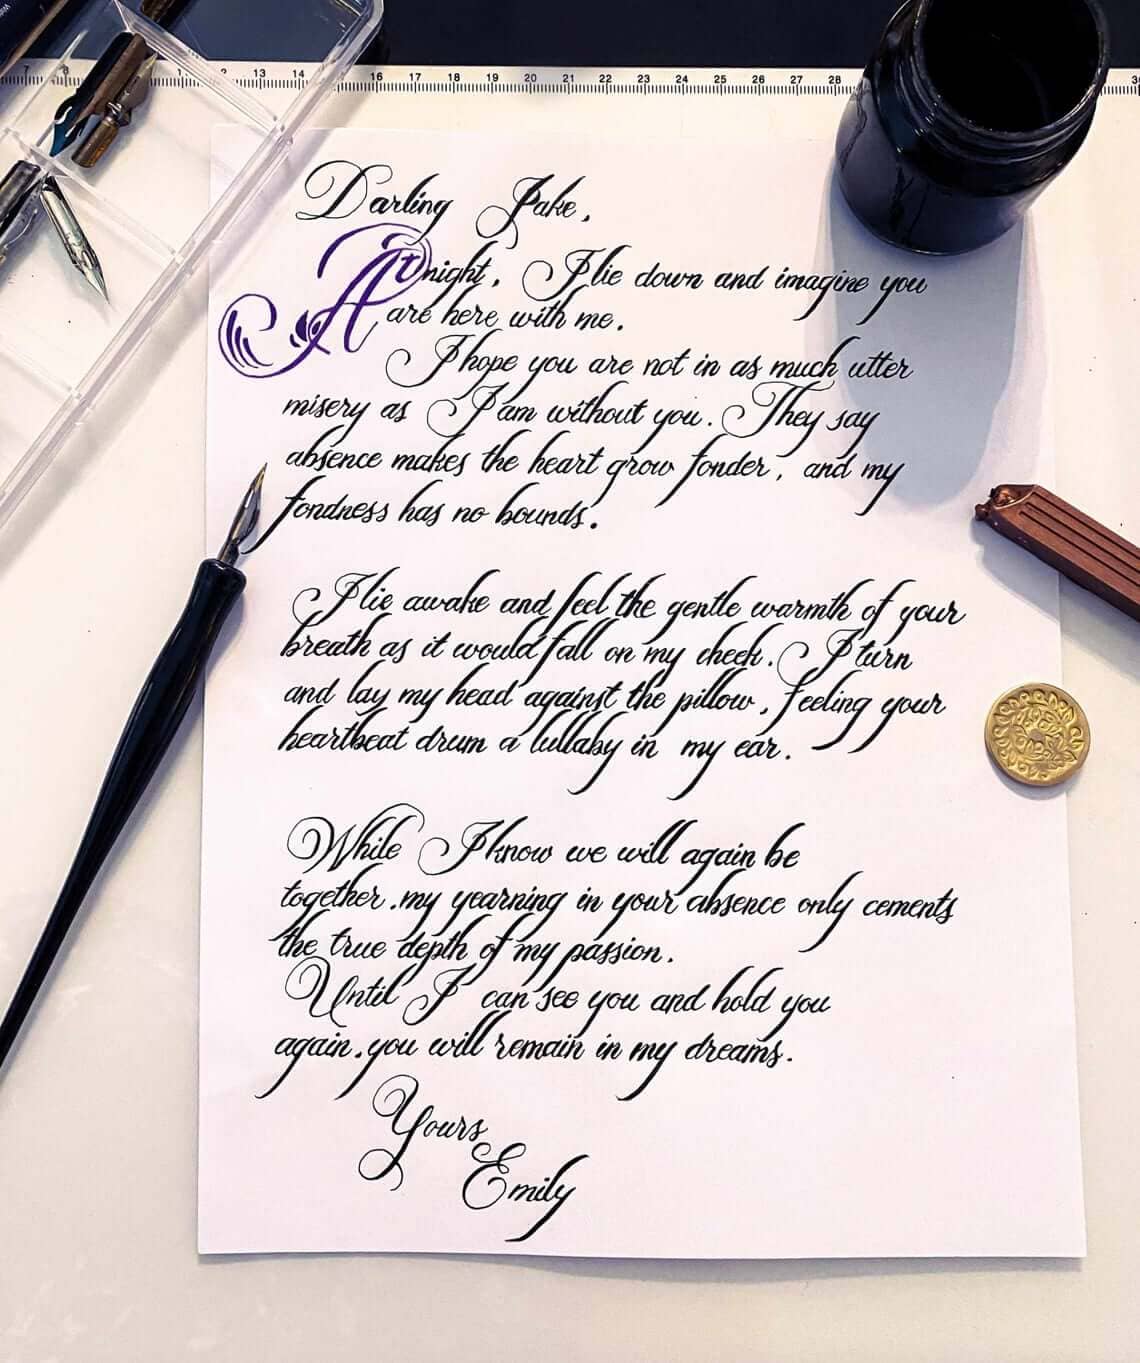 7 8 12 13 14 16 17 18 19 20 21 22 23 24 25 26 27 28 30
Darling Jake,
At night, I lie down and imagine you
are here with me.
I hope you are not in as much utter
misery as I am without you. They say
absence makes the heart grow fonder, and my
fondness has no bounds.
I lie awake and feel the gentle warmth of your
breath as it would fall on my cheek. I turn
and lay my head against the pillow, feeling your
heartbeat drum a lullaby in my ear.
While I know we will again be
together, my yearning in your absence only cements
the true depth of my passion.
Until I can see you and hold you
again, you will remain in my dreams.
Yours
Emily